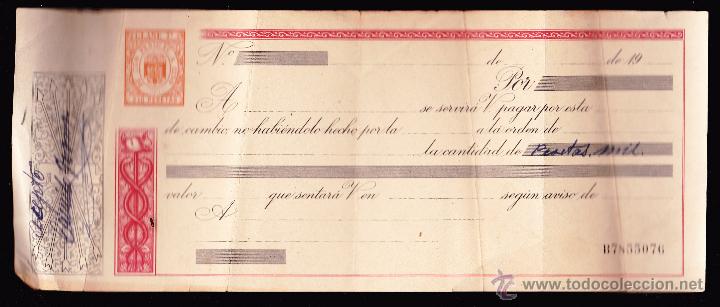 CLASE 7ª
N.º de de 19
Por
A se servirá V pagar por esta
de cambio, no habiéndolo hecho por la a la orden de
la cantidad de Pesetas mil.
valor que sentará V en según aviso de
A
B7855076
Acepto
todocoleccion
www.todocoleccion.net